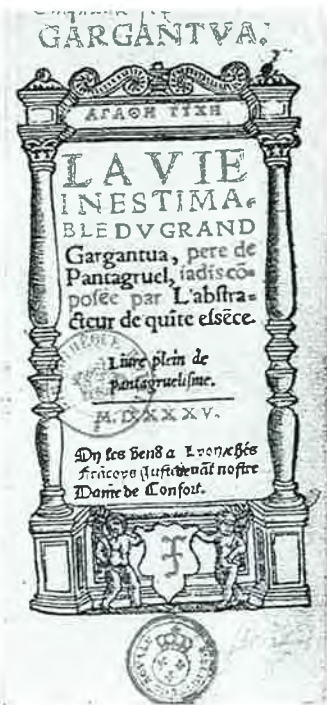 GARGANTVA.
ΑΓΑΘΗ ΤΥΧΗ
LA VIE
INESTIMA-
BLE DV GRAND
Gargantua, pere de
Pantagruel, iadis cō-
posée par L'abstra-
cteur de quīte essēce.
Liure plein de
pantagruelisme.
M.D.XXXV.
On les vend a Lyon chés
Frācoys Iuste deuāt nostre
Dame de Confort.
F